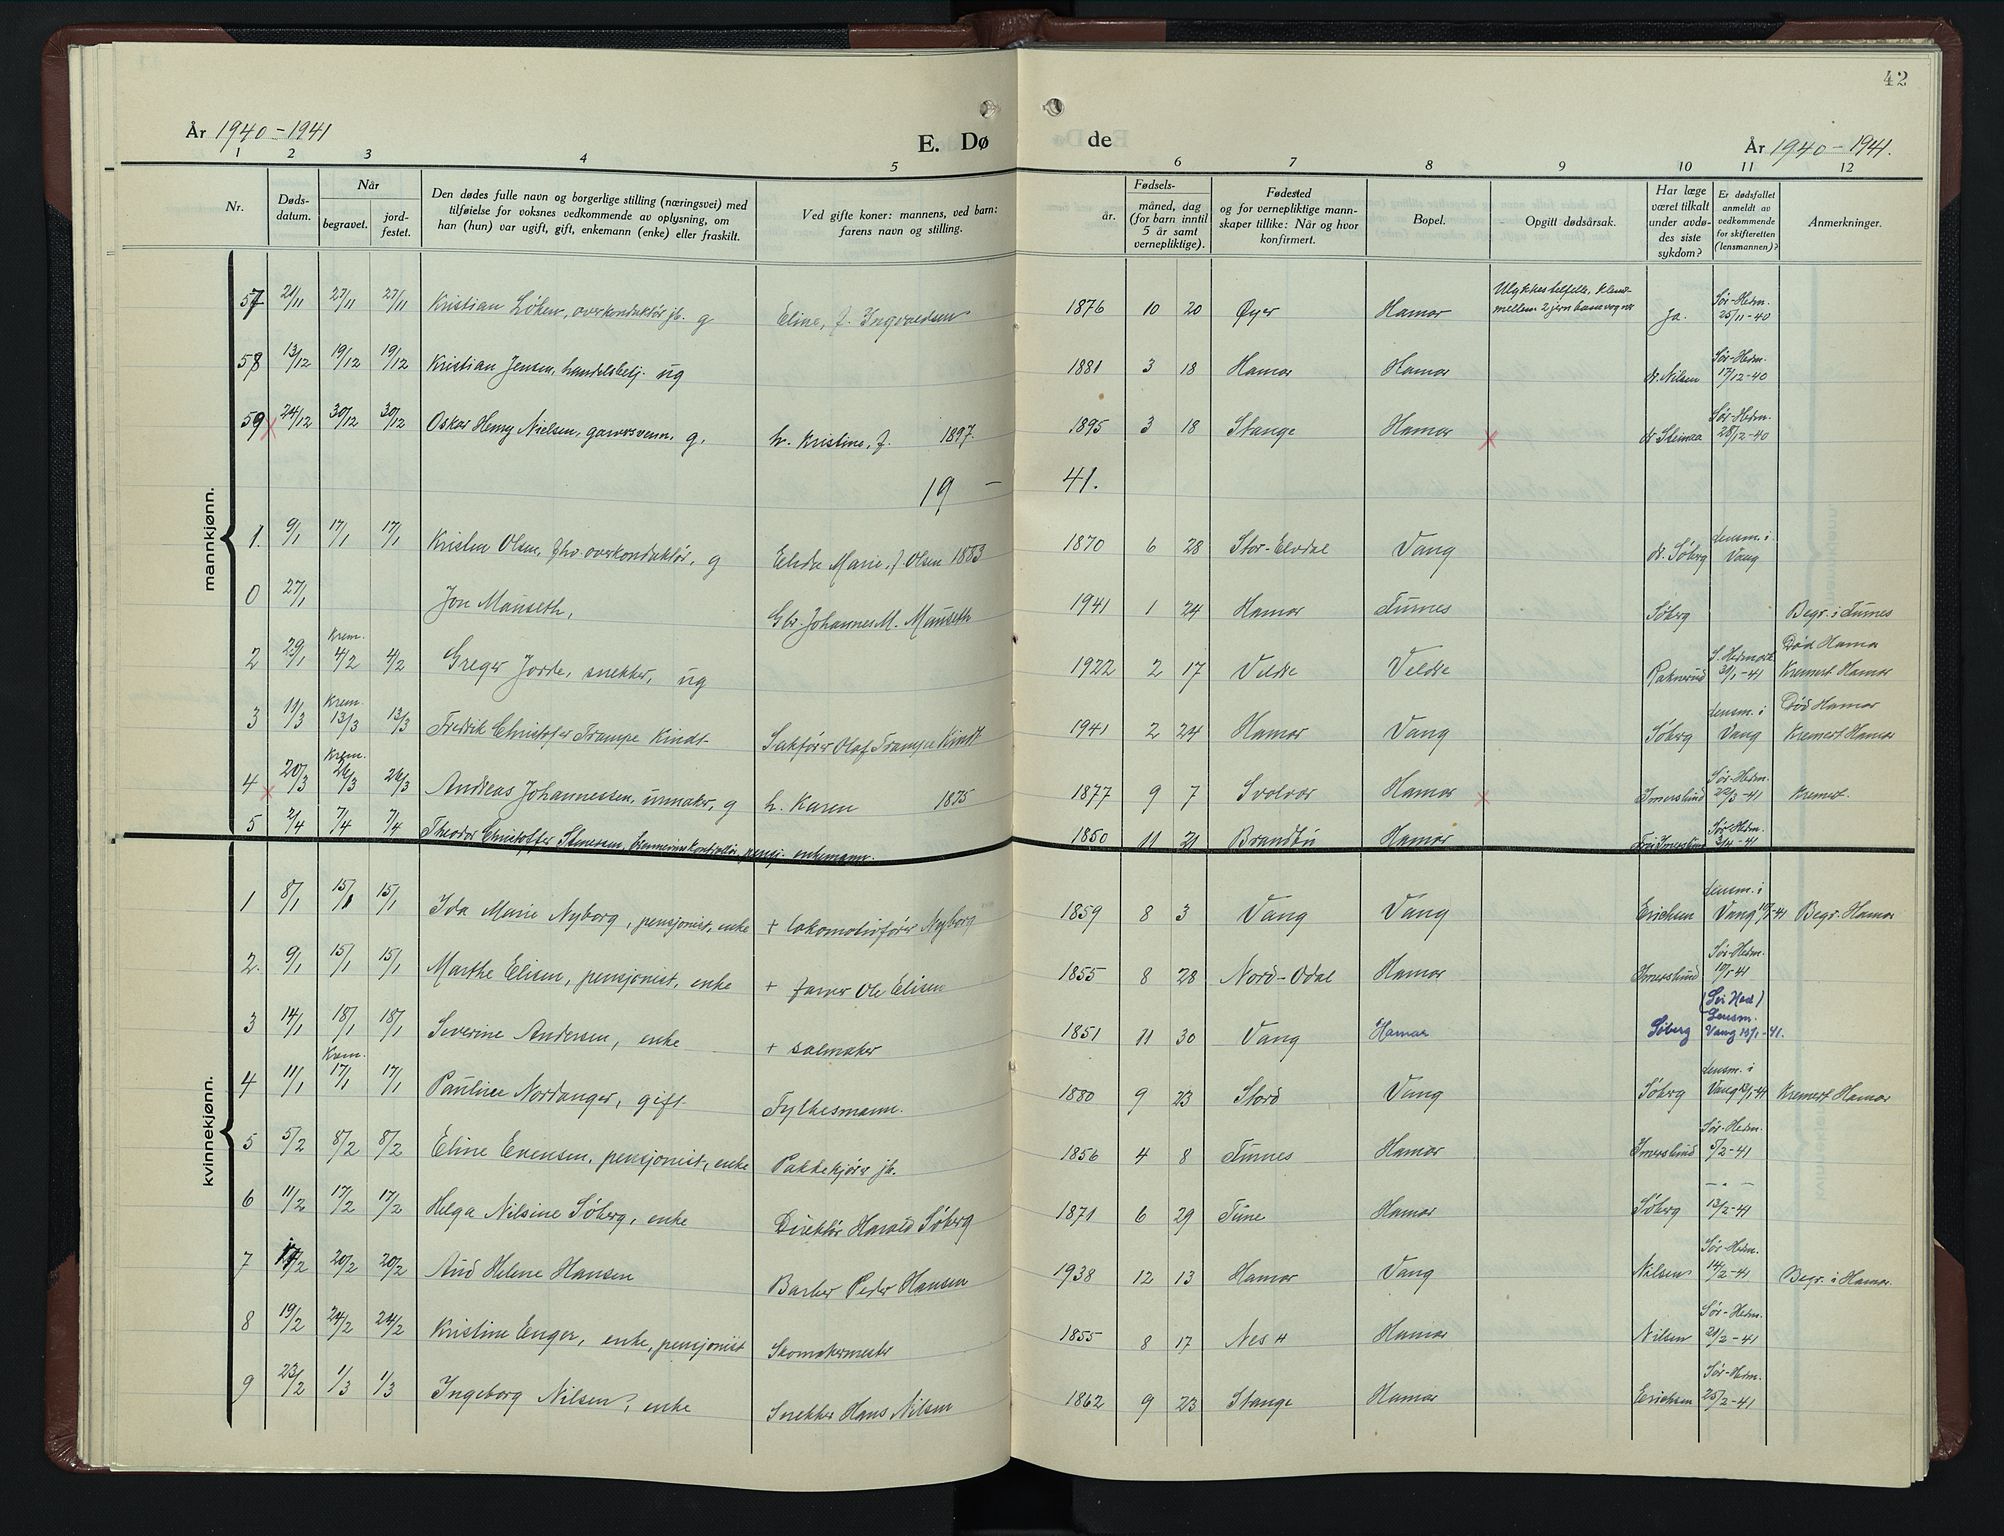 42
År 1940-1941
E. Dø de
År 1940-1941.
1 2 3 4 5 6 7 8 9 10 11 12
Nr.
Døds-
datum.
Når
begravet.
jord-
festet.
Den dødes fulle navn og borgerlige stilling (næringsvei) med
tilføielse for voksnes vedkommende av oplysning, om
han (hun) var ugift, gift, enkemann (enke) eller fraskilt.
Ved gifte koner: mannens, ved barn:
farens navn og stilling.
Fødsels-
år.
måned, dag
(for barn inntil
5 år samt
vernepliktige).
Fødested
og for vernepliktige mann-
skaper tillike: Når og hvor
konfirmert.
Bopel.
Opgitt dødsårsak.
Har læge
været tilkalt
under avdø-
des siste
sykdom?
Er dødsfallet
anmeldt av
vedkommende
for skifteretten
(lensmannen)?
Anmerkninger.
mannkjønn.
57 21/11 27/11 27/11 Kristian Løken, overkonduktør jb. g Eline, f. Ingvaldsen 1876 10 20 Øyer Hamar Ulykkestilfelle, klemt mellem 2 jernbanevogner Ja. Sør-Hedm. 25/11-40
58 13/12 19/12 19/12 Kristian Jensen, handelsbetj. ug 1881 3 18 Hamar Hamar dr. Nilsen Sør-Hedm. 17/12-40
59 24/12 30/12 30/12 Oskar Henry Nielsen, garversvenn. g. h. Kristine, f. 1897. 1895 3 18 Stange Hamar dr Steinaa Sør-Hedm. 28/12-40
19 - 41.
1. 9/1 17/1 17/1 Kristen Olsen, fhv. overkonduktør, g Elida Marie, f Olsen 1883 1870 6 28 Stor-Elvdal Vang dr. Søberg Lensm. i Vang
0 27/1 Jon Mauseth, Gbr. Johannes M. Mauseth 1941 1 24 Hamar Furnes Søberg Begr. i Furnes
2 29/1 Krem. 4/2 4/2 Greger Jorde, snekker, ug 1922 2 17 Veldre Veldre Raknerud S. Hedmark 31/1-41 Død Hamar Kremert Hamar
3 11/3 Krem. 13/3 13/3 Fredrik Christofer Trampe Kindt Sakfører Olaf Trampe Kindt 1941 2 24 Hamar Vang Søberg Lensm. i Vang Død Hamar Kremert Hamar
4 20/3 Krem. 26/3 26/3 Andreas Johannessen, urmaker, g h. Karen 1875 1877 9 7 Svolvær Hamar Imerslund Sør-Hedm. 22/3-41 Kremert.
5 2/4 7/4 7/4 Theodor Christoffer Stenersen, brennerikontrollør, pensj. enkemann. 1850 11 21 Brandbu Hamar Imerslund Sør-Hedm. 3/4-41
kvinnekjønn.
1 8/1 15/1 15/1 Ida Marie Nyborg, pensjonist, enke + lokomotivfører Nyborg 1859 8 3 Vang Vang Erichsen Lensm. i Vang 10/1-41 Begr. Hamar
2. 9/1 15/1 15/1 Marthe Elisen, pensjonist, enke + farver Ole Elisen 1855 8 28 Nord-Odal Hamar Imerslund Sør-Hedm. 10/1-41
3 14/1 18/1 18/1 Severine Andersen, enke + salmaker 1851 11 30 Vang Hamar Søberg Lensm. Vang 15/1-41.
4 11/1 Krem. 17/1 17/1 Pauline Nordanger, gift Fylkesmann. 1880 9 23 Stord Vang Søberg Lensm. i Vang 13/1-41 Kremert Hamar
5 5/2 8/2 8/2 Eline Evensen, pensjonist, enke Pakkekjører jb. 1856 4 8 Furnes Hamar Imerslund Sør-Hedm. 5/2-41
6 11/2 17/2 17/2 Helga Nilsine Søberg, enke Direktør Harald Søberg 1871 6 29 Tune Hamar Søberg - " - 13/2-41
7 14/2 20/2 20/2 Aud Helene Hansen Barber Peder Hansen 1938 12 13 Hamar Vang Nilsen Sør-Hedm. 14/2-41 Begr. i Hamar.
8 19/2 24/2 24/2 Kristine Enger, enke, pensjonist Skomakermester 1855 8 17 Nes H Hamar Nilsen Sør-Hedm. 21/2-41
9 23/2 1/3 1/3 Ingeborg Nilsen, enke Snekker Hans Nilsen 1862 9 23 Stange Hamar Erichsen Sør-Hedm. 25/2-41